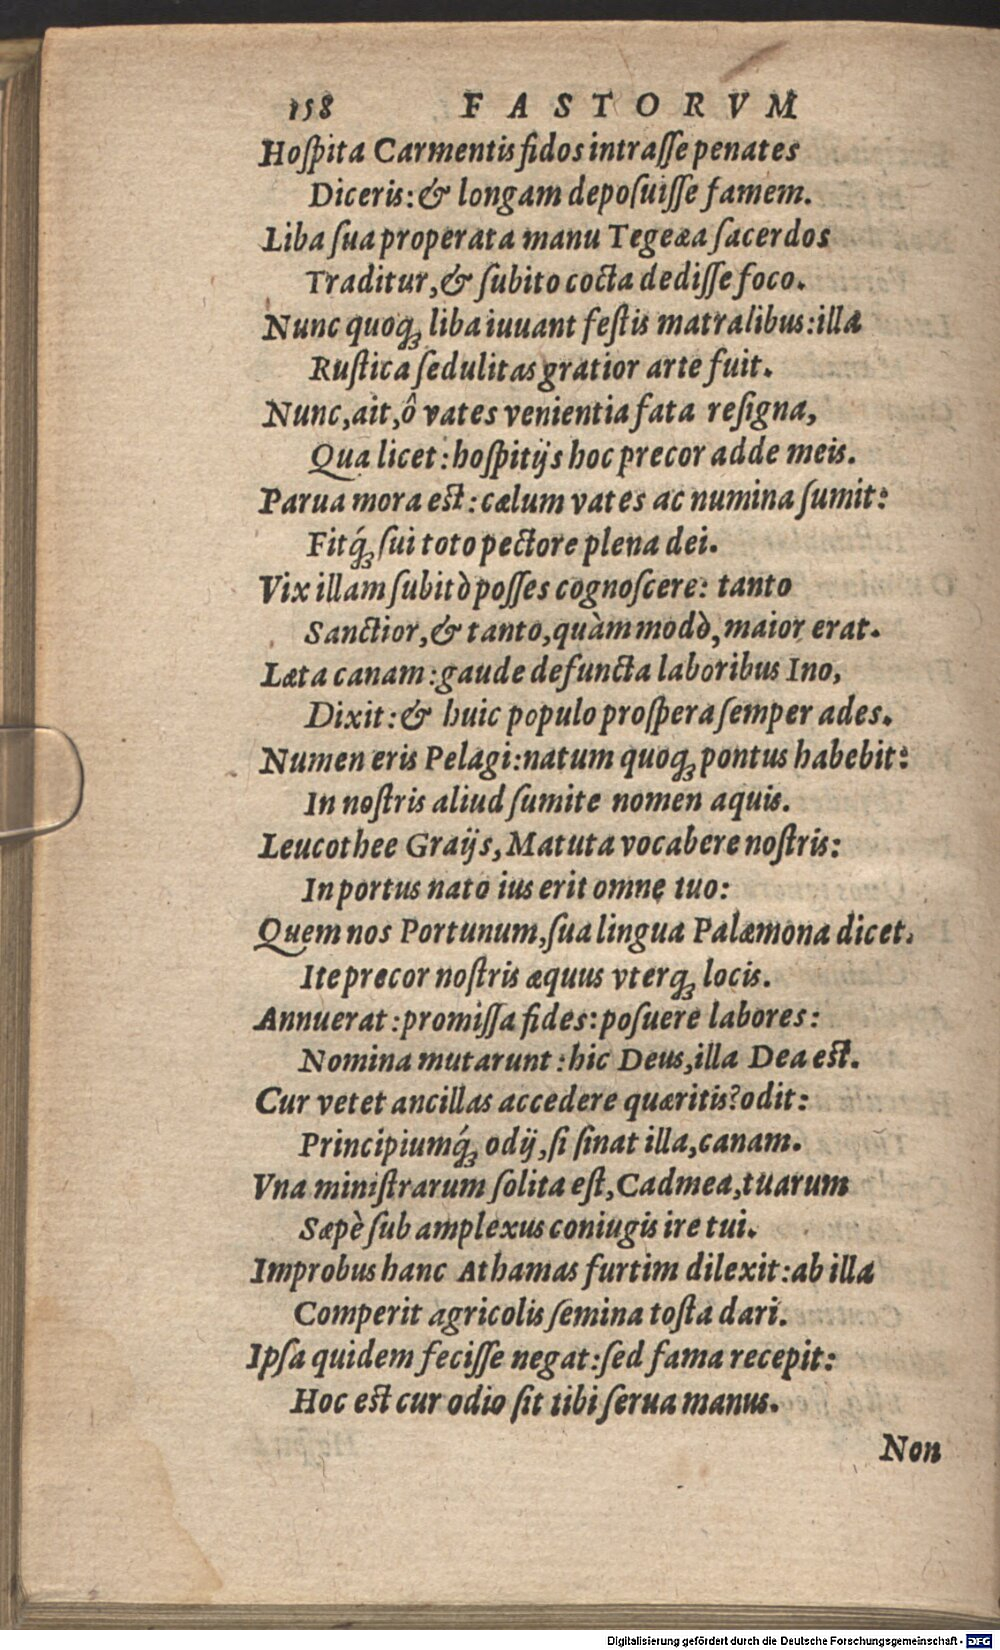 158 FASTORVM
Hoſpita Carmentis fidos intraſſe penates
Diceris: & longam depoſuiſſe famem.
Liba ſua properata manu Tegeæa ſacerdos
Traditur, & ſubito cocta dediſſe foco.
Nunc quoqꝫ liba iuuant feſtis matralibus: illa
Ruſtica ſedulitas gratior arte fuit.
Nunc, ait, ô vates venientia fata reſigna,
Qua licet: hoſpitijs hoc precor adde meis.
Parua mora eſt: cælum vates ac numina ſumit:
Fitq́ꝫ ſui toto pectore plena dei.
Vix illam ſubitò poſſes cognoſcere: tanto
Sanctior, & tanto, quàm modò, maior erat.
Læta canam: gaude defuncta laboribus Ino,
Dixit: & huic populo proſpera ſemper ades.
Numen eris Pelagi: natum quoqꝫ pontus habebit:
In noſtris aliud ſumite nomen aquis.
Leucothee Graijs, Matuta vocabere noſtris:
In portus nato ius erit omne tuo:
Quem nos Portunum, ſua lingua Palæmona dicet.
Ite precor noſtris æquus vterqꝫ locis.
Annuerat: promiſſa fides: poſuere labores:
Nomina mutarunt: hic Deus, illa Dea eſt.
Cur vetet ancillas accedere quæritis? odit:
Principiumq́ꝫ odij, ſi ſinat illa, canam.
Vna miniſtrarum ſolita eſt, Cadmea, tuarum
Sæpè ſub amplexus coniugis ire tui.
Improbus hanc Athamas furtim dilexit: ab illa
Comperit agricolis ſemina toſta dari.
Ipſa quidem feciſſe negat: ſed fama recepit:
Hoc eſt cur odio ſit tibi ſerua manus.
Non
Digitalisierung gefördert durch die Deutsche Forschungsgemeinschaft - DFG